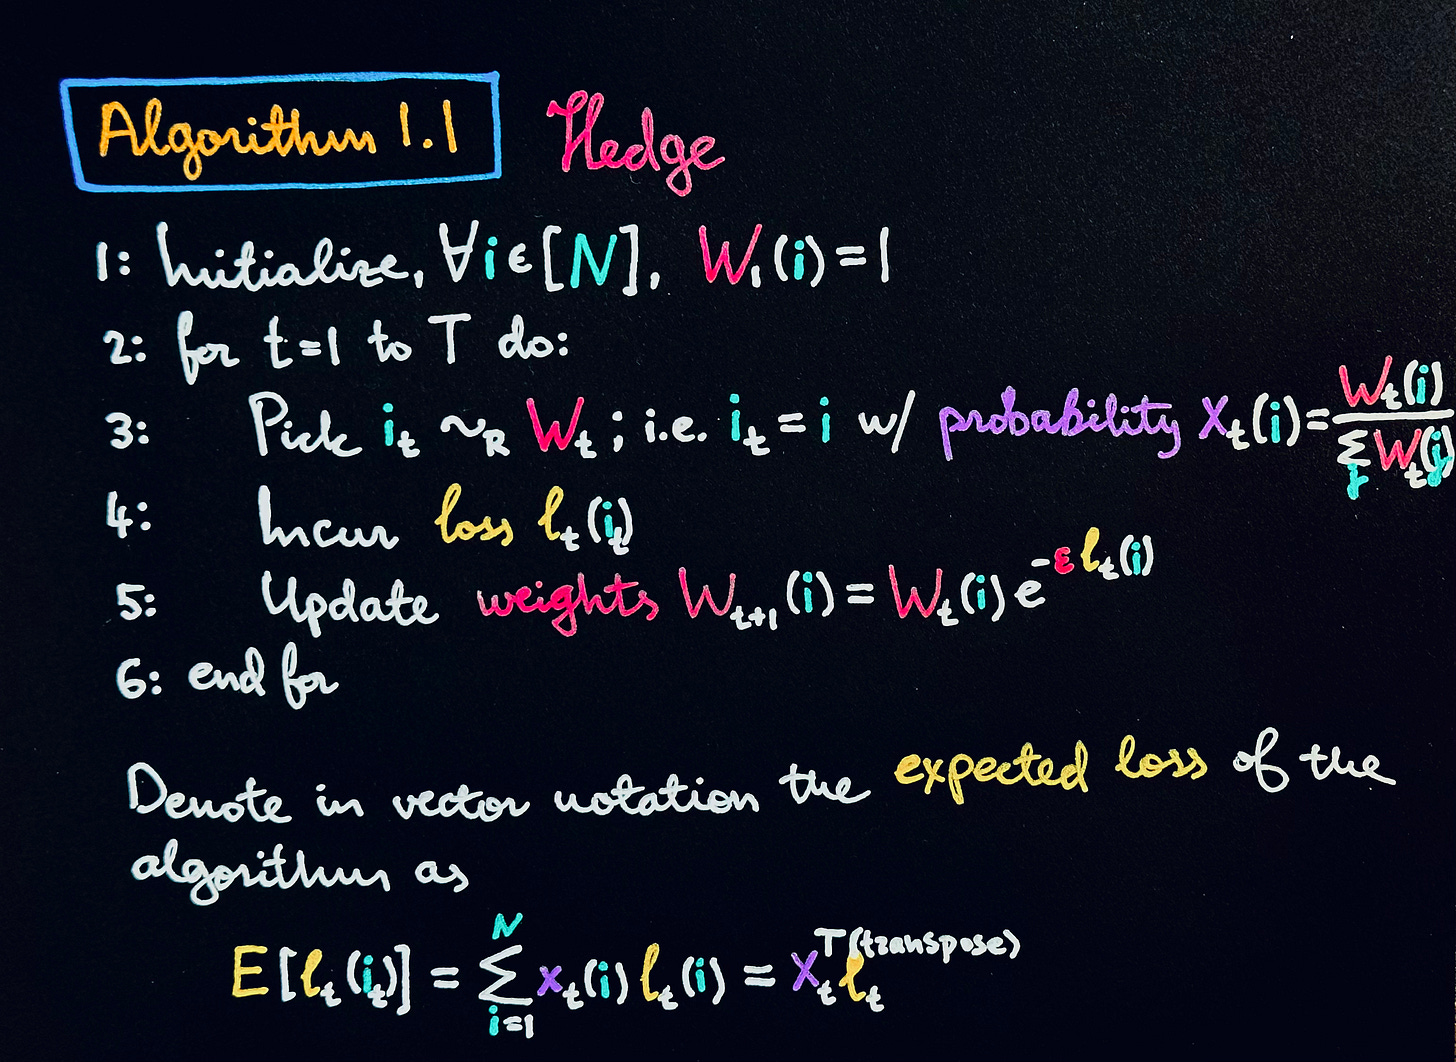 Algorithm 1.1 Hedge
1: Initialize, ∀i∈[N], W₁(i)=1
2: for t=1 to T do:
3: Pick iₜ ~_R Wₜ; i.e. iₜ = i w/ probability Xₜ(i)= Wₜ(i) / Σ_j Wₜ(j)
4: Incur loss lₜ(iₜ)
5: Update weights Wₜ₊₁(i) = Wₜ(i) e^{-ε lₜ(i)}
6: end for
Denote in vector notation the expected loss of the
algorithm as
E[lₜ(iₜ)] = Σ_{i=1}^{N} xₜ(i) lₜ(i) = xₜ^{T(transpose)} lₜ